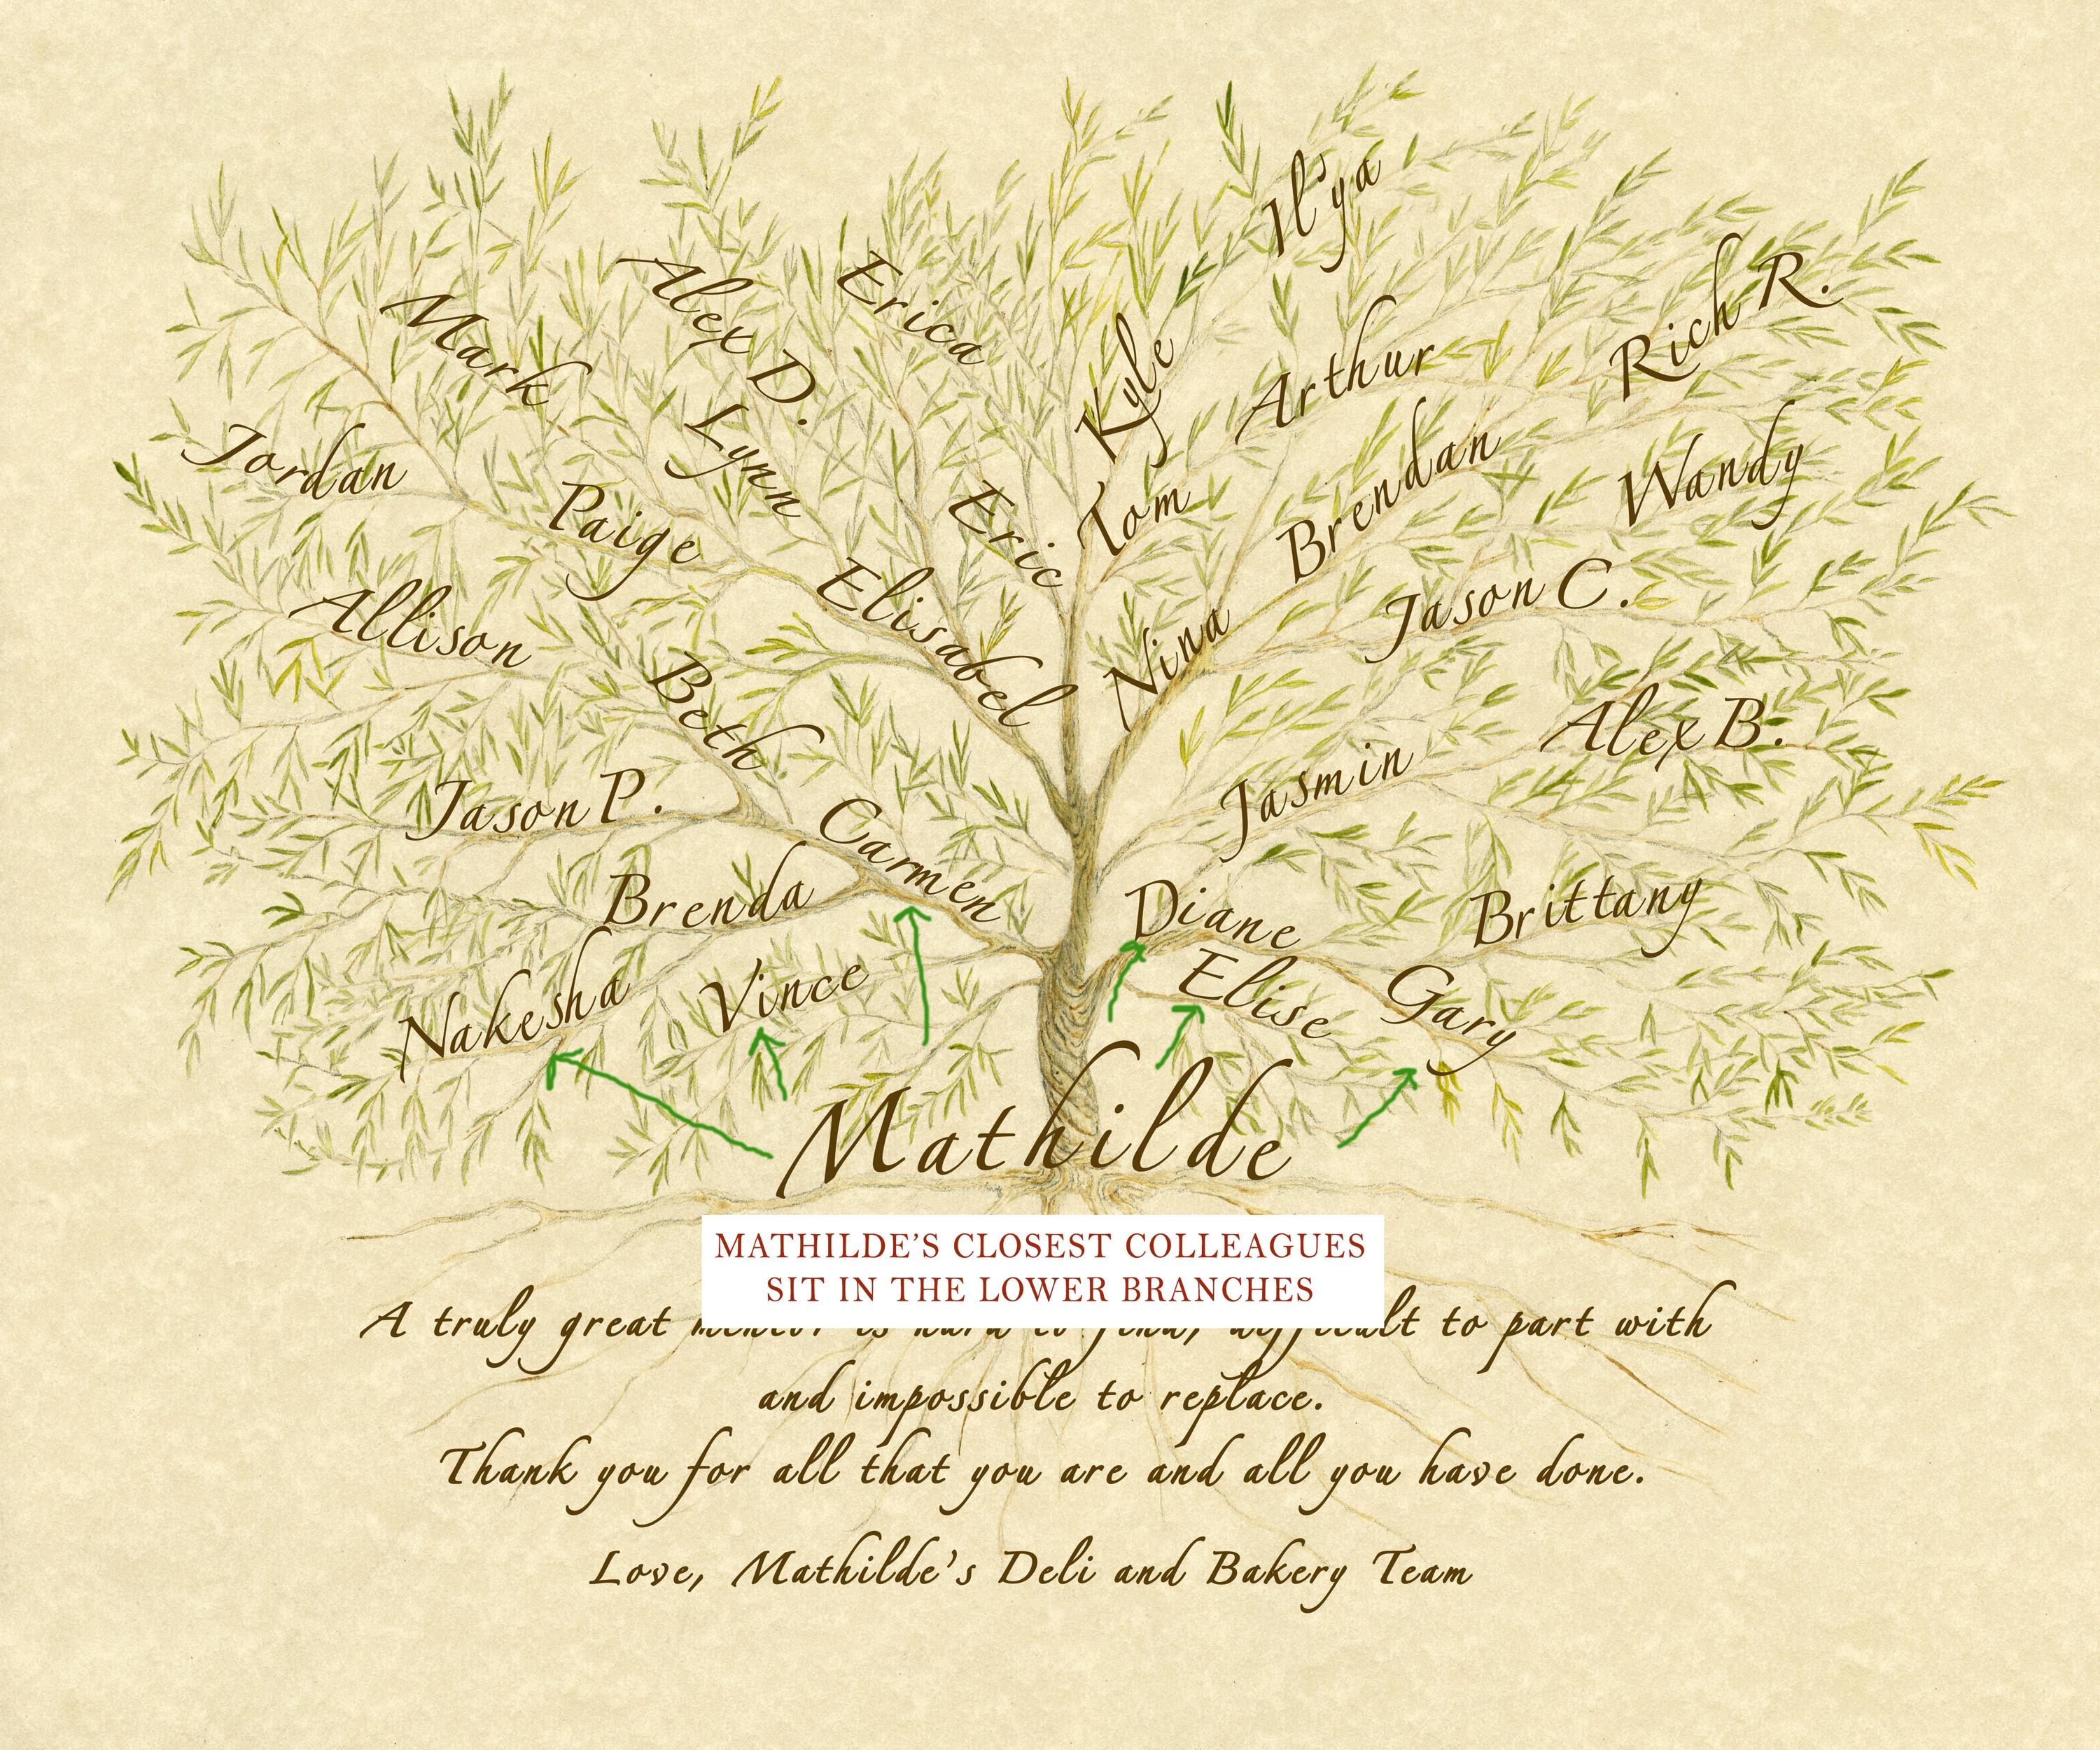 Il'ya
Erica
Alex D.
Rich R.
Mark
Kyle
Arthur
Lynn
Jordan
Brendan
Wandy
Paige
Eric
Tom
Allison
Elisabel
Jason C.
Nina
Beth
Alex B.
Jason P.
Jasmin
Carmen
Brenda
Diane
Brittany
Nakesha
Vince
Elise
Gary
Mathilde
MATHILDE'S CLOSEST COLLEAGUES
SIT IN THE LOWER BRANCHES
A truly great mentor is hard to find, difficult to part with
and impossible to replace.
Thank you for all that you are and all you have done.
Love, Mathilde's Deli and Bakery Team